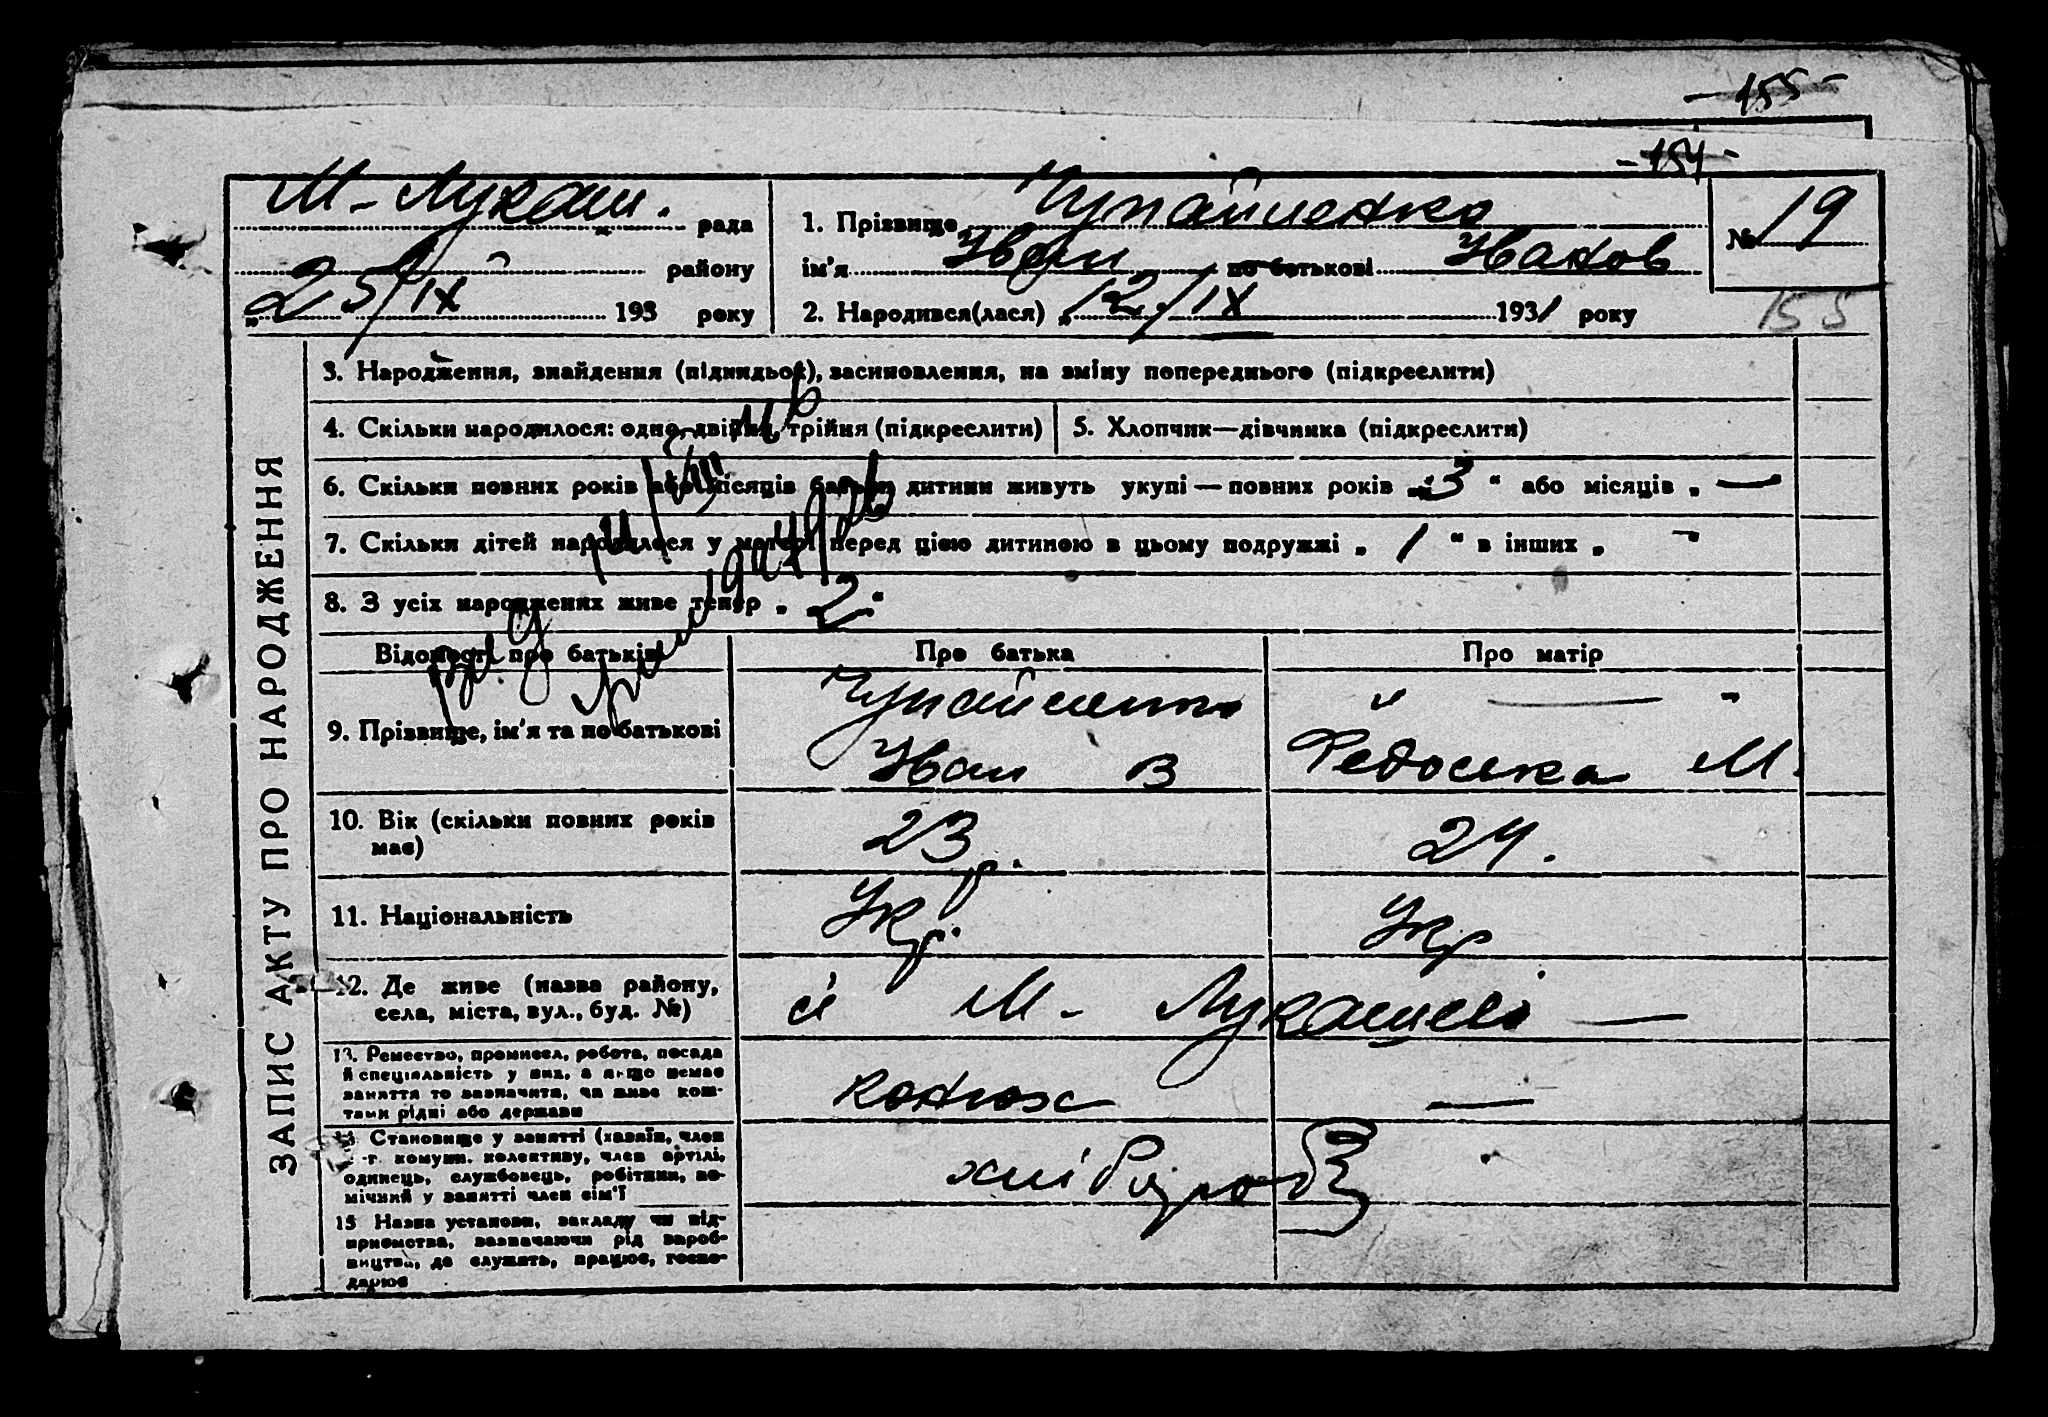 - 155 -
- 154 -
М-Лукаш. рада
району
„25/IX 193 року
1. Прізвище Чупайленко
ім'я Іван по батькові Іванов
2. Народився(лася) „12/IX 1931 року
№ 19
155
ЗАПИС АКТУ ПРО НАРОДЖЕННЯ
3. Народження, знайдення (підкидьок), засиновлення, на зміну попереднього (підкреслити)
4. Скільки народилося: одно, двійня, трійня (підкреслити)
5. Хлопчик—дівчинка (підкреслити)
6. Скільки повних років або місяців батьки дитини живуть укупі — повних років „3“ або місяців „ —
7. Скільки дітей народилося у матері перед цією дитиною в цьому подружжі „ 1 “ в інших „ -
8. З усіх народжених живе тепер „ 2 “
Відомості про батьків
Про батька
Про матір
9. Прізвище, ім'я та по батькові
Іван В
" — "
Федоська М.
10. Вік (скільки повних років
має)
23 р.
24.
11. Національність
Укр.
Укр
12. Де живе (назва району,
села, міста, вул., буд. №)
М - Лукашеві —
13. Ремество, промисел, робота, посада
й спеціяльність у них, а якщо немає
заняття то зазначити, чи живе кош-
тами рідні або держави
—
14 Становище у занятті (хазяїн, член
с.-г. комуни, колективу, член артілі,
одинець, службовець, робітник, по-
мічний у занятті член сім'ї
хлібороб
15 Назва установи, закладу чи під-
приємства, зазначаючи рід вироб-
ництва, де служить, працює, госпо-
дарює